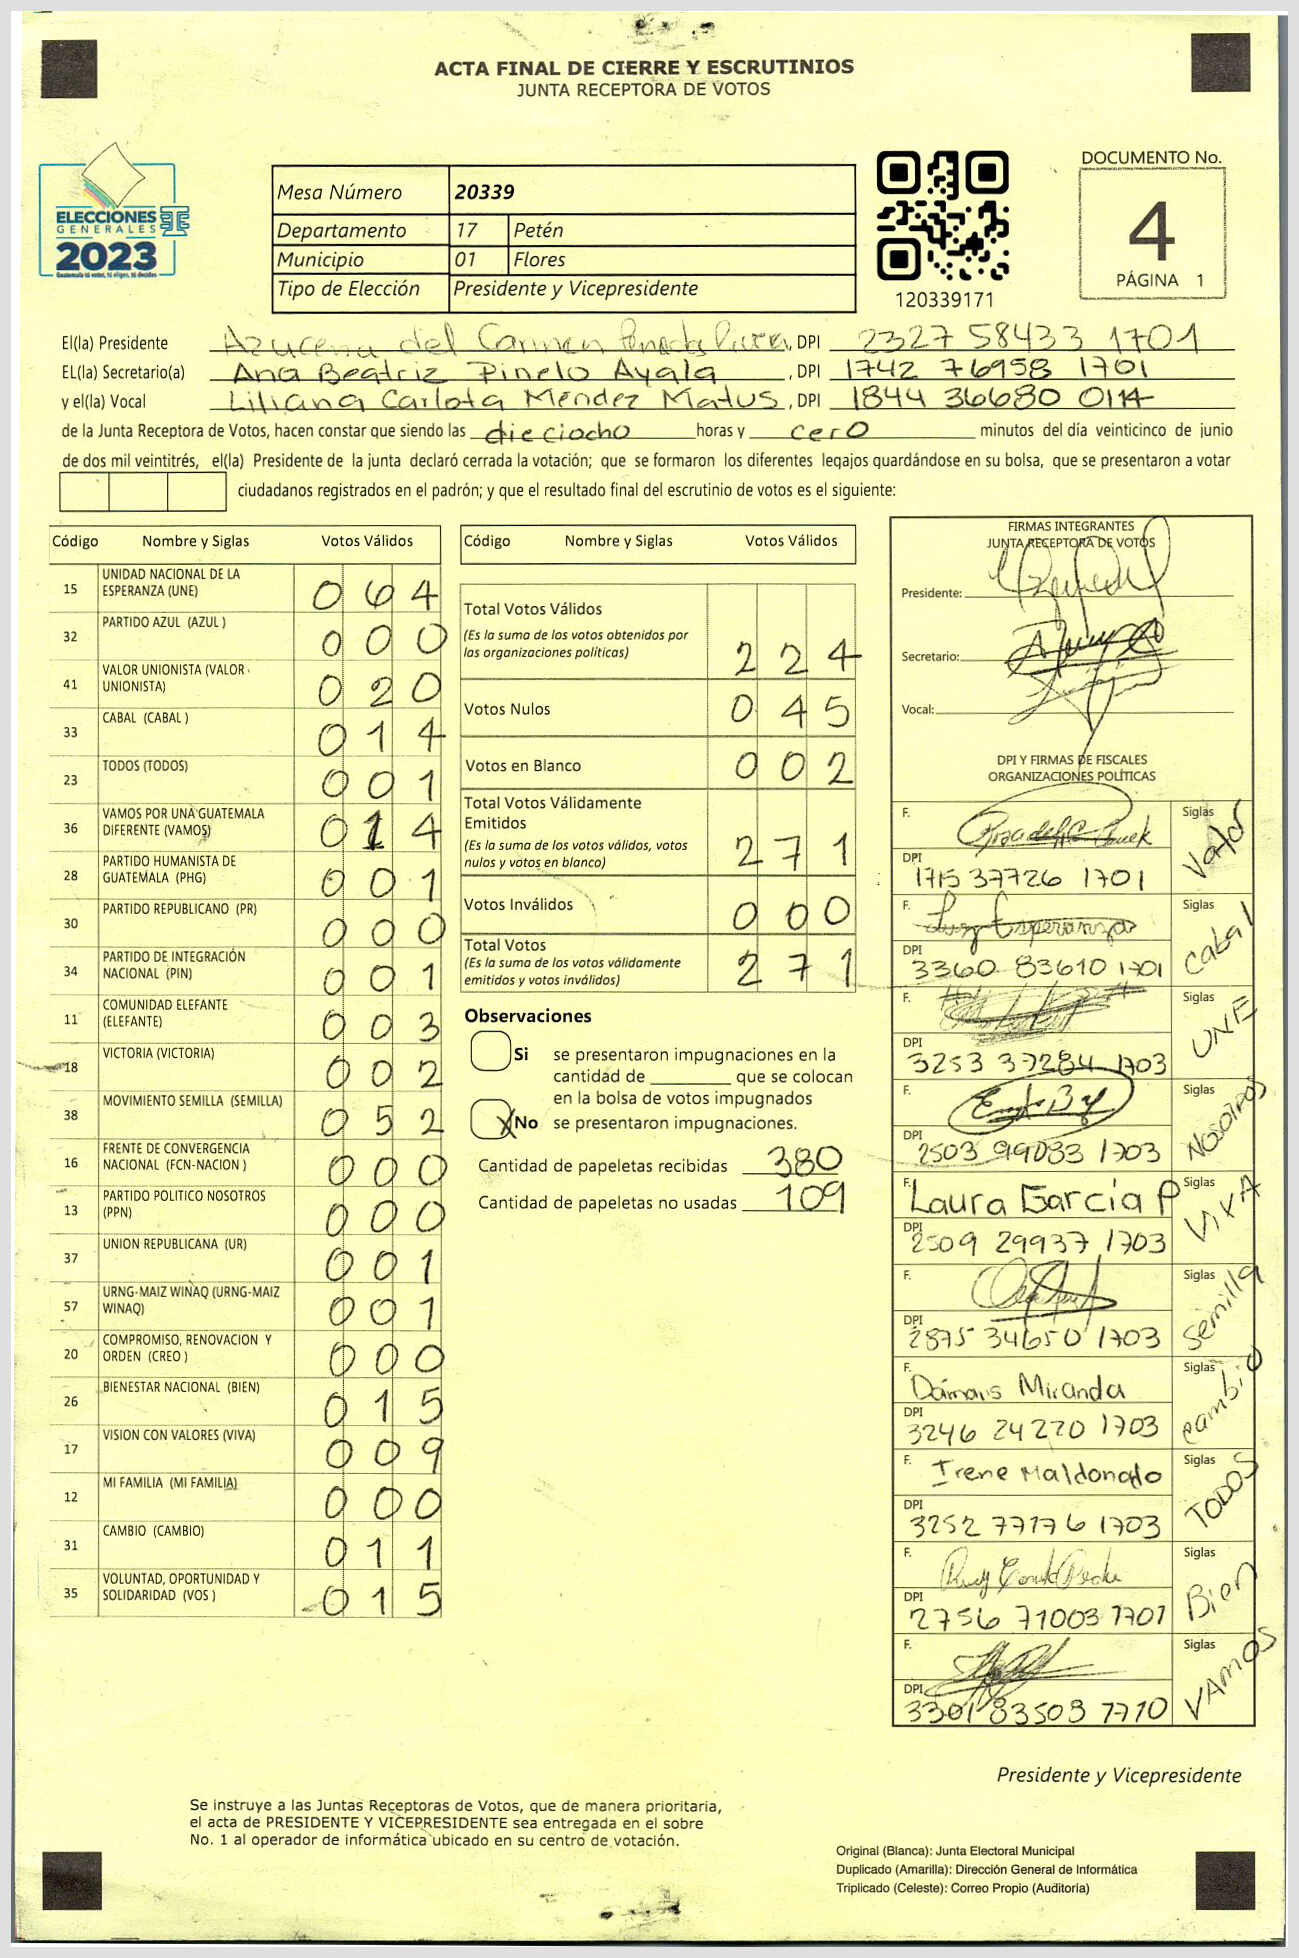 ACTA FINAL DE CIERRE Y ESCRUTINIOS
JUNTA RECEPTORA DE VOTOS
ELECCIONES
GENERALES
2023
Guatemala tú votas, tú eliges, tú decides
Mesa Número 20339
Departamento 17 Petén
Municipio 01 Flores
Tipo de Elección Presidente y Vicepresidente
120339171
DOCUMENTO No.
4
PÁGINA 1
El(la) Presidente Azucena del Carmen , DPI 2327 58433 1701
EL(la) Secretario(a) Ana Beatriz Pinelo Ayala , DPI 1742 76958 1701
y el(la) Vocal Liliana Carlota Méndez Matus , DPI 1844 36680 0114
de la Junta Receptora de Votos, hacen constar que siendo las dieciocho horas y cero minutos del día veinticinco de junio
de dos mil veintitrés, el(la) Presidente de la junta declaró cerrada la votación; que se formaron los diferentes legajos guardándose en su bolsa, que se presentaron a votar
ciudadanos registrados en el padrón; y que el resultado final del escrutinio de votos es el siguiente:
Código Nombre y Siglas Votos Válidos
15 UNIDAD NACIONAL DE LA ESPERANZA (UNE) 064
32 PARTIDO AZUL (AZUL ) 000
41 VALOR UNIONISTA (VALOR UNIONISTA) 020
33 CABAL (CABAL ) 014
23 TODOS (TODOS) 001
36 VAMOS POR UNA GUATEMALA DIFERENTE (VAMOS) 014
28 PARTIDO HUMANISTA DE GUATEMALA (PHG) 001
30 PARTIDO REPUBLICANO (PR) 000
34 PARTIDO DE INTEGRACIÓN NACIONAL (PIN) 001
11 COMUNIDAD ELEFANTE (ELEFANTE) 003
18 VICTORIA (VICTORIA) 002
38 MOVIMIENTO SEMILLA (SEMILLA) 052
16 FRENTE DE CONVERGENCIA NACIONAL (FCN-NACION ) 000
13 PARTIDO POLITICO NOSOTROS (PPN) 000
37 UNION REPUBLICANA (UR) 001
57 URNG-MAIZ WINAQ (URNG-MAIZ WINAQ) 001
20 COMPROMISO, RENOVACION Y ORDEN (CREO ) 000
26 BIENESTAR NACIONAL (BIEN) 015
17 VISION CON VALORES (VIVA) 009
12 MI FAMILIA (MI FAMILIA) 000
31 CAMBIO (CAMBIO) 011
35 VOLUNTAD, OPORTUNIDAD Y SOLIDARIDAD (VOS ) 015
Código Nombre y Siglas Votos Válidos
Total Votos Válidos 224
(Es la suma de los votos obtenidos por
las organizaciones políticas)
Votos Nulos 045
Votos en Blanco 002
Total Votos Válidamente
Emitidos 271
(Es la suma de los votos válidos, votos
nulos y votos en blanco)
Votos Inválidos 000
Total Votos 271
(Es la suma de los votos válidamente
emitidos y votos inválidos)
Observaciones
Si se presentaron impugnaciones en la
cantidad de ________ que se colocan
en la bolsa de votos impugnados
X No se presentaron impugnaciones.
Cantidad de papeletas recibidas 380
Cantidad de papeletas no usadas 109
FIRMAS INTEGRANTES
JUNTA RECEPTORA DE VOTOS
Presidente:
Secretario:
Vocal:
DPI Y FIRMAS DE FISCALES
ORGANIZACIONES POLÍTICAS
F. Siglas Valor
DPI 1715 37726 1701
F. Luz Esperanza Siglas Cabal
DPI 3360 83610 1701
F. Siglas UNE
DPI 3253 37284 1703
F. Siglas NOSOTROS
DPI 2503 99083 1703
F. Laura García P Siglas VIVA
DPI 2509 29937 1703
F. Siglas Semilla
DPI 2875 34650 1703
F. Dámaris Miranda Siglas cambio
DPI 3246 24220 1703
F. Irene Maldonado Siglas TODOS
DPI 3252 77176 1703
F. Siglas Bien
DPI 2756 71003 1701
F. Siglas VAMOS
DPI 3301 83503 1710
Presidente y Vicepresidente
Se instruye a las Juntas Receptoras de Votos, que de manera prioritaria,
el acta de PRESIDENTE Y VICEPRESIDENTE sea entregada en el sobre
No. 1 al operador de informática ubicado en su centro de votación.
Original (Blanca): Junta Electoral Municipal
Duplicado (Amarilla): Dirección General de Informática
Triplicado (Celeste): Correo Propio (Auditoría)